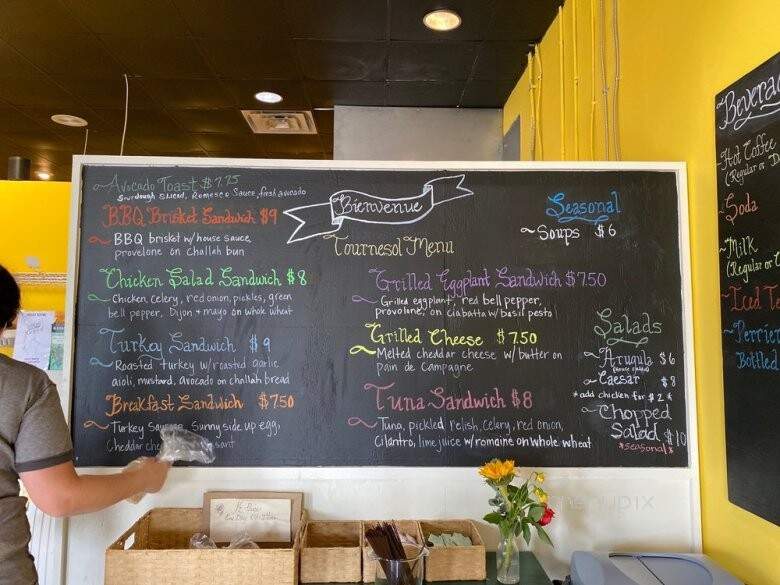 Avocado Toast $7.75
Sourdough sliced, Romesco Sauce, fresh avocado
BBQ Brisket Sandwich $9
~ BBQ brisket w/ house sauce,
provelone on challah bun
Chicken Salad Sandwich $8
~ Chicken, Celery, red onion, pickles, green
bell pepper, Dijon + mayo on whole wheat
Turkey Sandwich $9
~ Roasted turkey w/ roasted garlic
aioli, mustard, avocado on challah bread
Breakfast Sandwich $7.50
~ Turkey Sunny side up egg,
Cheddar
Bienvenue
Tournesol Menu
Grilled Eggplant Sandwich $7.50
~ Grilled eggplant, red bell pepper,
provolone, on ciabatta w/ basil pesto
Grilled Cheese $7.50
~ Melted cheddar cheese w/ butter on
pain de Campagne
Tuna Sandwich $8
~ Tuna, pickled relish, Celery, red onion,
Cilantro, lime juice w/ romaine on whole wheat
Seasonal
~ Soups $6
Salads
~ Arugula $6
~ Caesar $8
*add chicken for $2*
~ Chopped
Salad $10
*seasonal*
Bevera
~ Hot Coffee
(Regular or D
~ Soda
~ Milk
(Regular or
~ Iced T
~ Perrier
Bottled